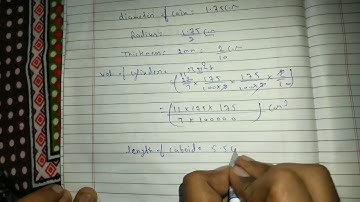 diameter of coin = 1.75 cm
Radius = 1.75/2 cm
Thickness = 2mm = 2/10 cm
vol of cylinder = πr²h
(22/7 × 175/100×2 × 175/100×2 × 2/10)
= (11 × 175 × 175 / 7 × 100000) cm³
length of cuboid = 5.5